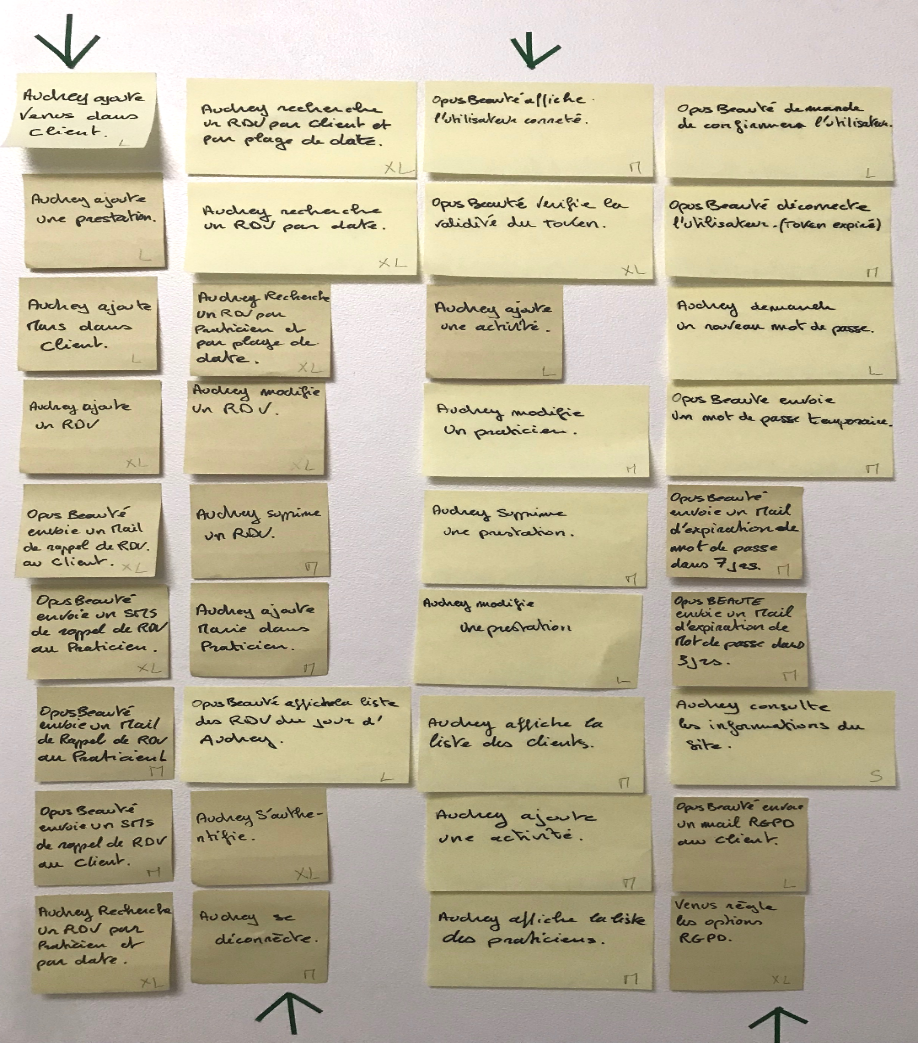 Audrey ajoute
Venus dans
Client.
L
Audrey ajoute
une prestation.
L
Audrey ajoute
Mars dans
Client.
L
Audrey ajoute
un RDV
XL
Opus Beauté
envoie un Mail
de rappel de RDV
au Client.
XL
Opus Beauté
envoie un SMS
de rappel de RDV
au Praticien.
XL
Opus Beauté
envoie un Mail
de Rappel de RDV
au Praticien
M
Opus Beauté
envoie un SMS
de rappel de RDV
au Client.
M
Audrey Recherche
un RDV par
Praticien et
par date.
XL
Audrey recherche
un RDV par Client et
par plage de date.
XL
Audrey recherche
un RDV par date.
XL
Audrey Recherche
un RDV par
Praticien et
par plage de
date.
XL
Audrey modifie
un RDV.
XL
Audrey supprime
un RDV.
M
Audrey ajoute
Marie dans
Praticien.
M
Opus Beauté affiche la liste
des RDV du jour d'
Audrey.
L
Audrey S'authe-
ntifie.
XL
Audrey se
déconnecte.
M
Opus Beauté affiche
l'utilisateur conneté.
M
Opus Beauté Verifie la
validité du Token.
XL
Audrey ajoute
une activité.
L
Audrey modifie
Un praticien.
M
Audrey Supprime
une prestation.
M
Audrey modifie
une prestation
L
Audrey affiche la
liste des clients.
M
Audrey ajoute
une activité.
M
Audrey affiche la liste
des praticiens.
M
Opus Beauté demande
de confirmer l'utilisateur.
L
Opus Beauté déconnecte
l'utilisateur. (Token expiré)
M
Audrey demande
un nouveau mot de passe.
L
Opus Beauté envoie
Un mot de passe temporaire.
M
Opus Beauté
envoie un Mail
d'expiration de
mot de passe
dans 7 jrs.
M
Opus BEAUTE
envoie un Mail
d'expiration de
Mot de passe dans
3 jrs.
M
Audrey consulte
les informations du
Site.
S
Opus Beauté envoie
un mail RGPD
au Client.
L
Venus règle
les options
RGPD.
XL